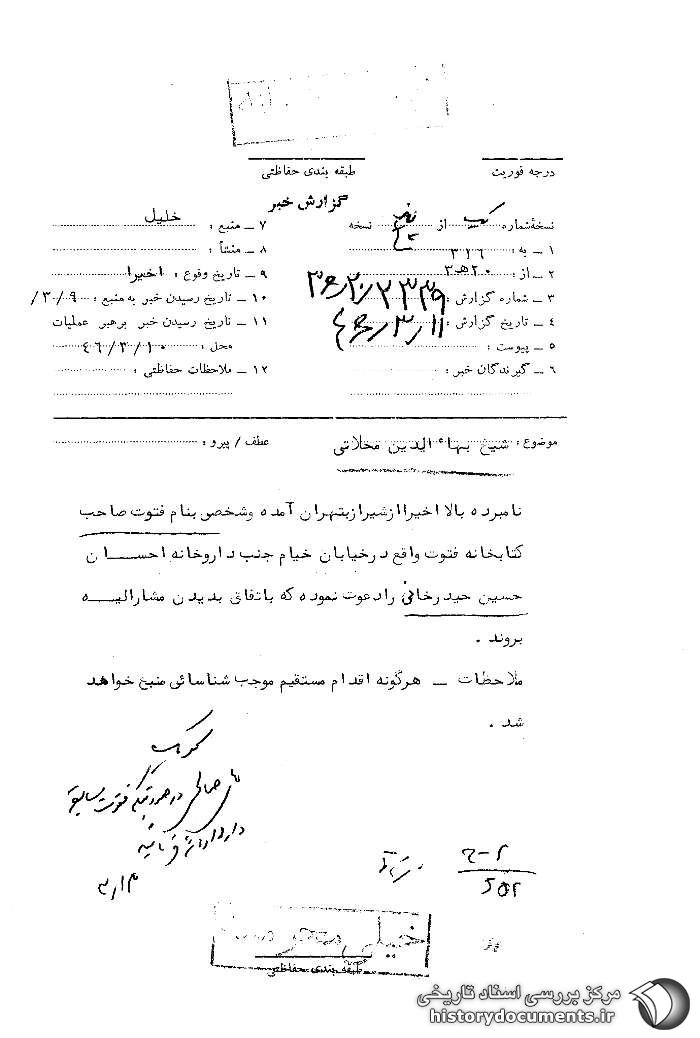 درجه فوریت
طبقه بندی حفاظتی
گزارش خبر
نسخهٔ شماره یک از نسخه
۱ ــ به : ۳۱۶
۲ ــ از : ۲۰ هـ ۳
۳ ــ شماره گزارش :
۴ ــ تاریخ گزارش : ۱۱ / ۳ /
۵ ــ پیوست :
۶ ــ گیرندگان خبر :
۷ ــ منبع : خلیل
۸ ــ منشأ :
۹ ــ تاریخ وقوع : اخیرا
۱۰ ــ تاریخ رسیدن خبر به منبع : ۳۰/۰۹/
۱۱ ــ تاریخ رسیدن خبر برهبر عملیات
محل : ۴۶/۳/۱۰
۱۲ ــ ملاحظات حفاظتی :
موضوع : شیخ بهاء الدین محلاتی
عطف / پیرو :
نامبرده بالا اخیرا از شیراز بتهران آمده و شخصی بنام فتوت صاحب
کتابخانه فتوت واقع در خیابان خیام جنب داروخانه احسان
حسین حیدرخانی را دعوت نموده که باتفاق بدیدن مشارالیه
بروند .
ملاحظات ــ هرگونه اقدام مستقیم موجب شناسائی منبع خواهد
شد .
صالحی در صورتیکه فتوت سابقه
دارد
۳/۱۳
۲-ح
۵۵۲
خیلی محرمانه
طبقه بندی حفاظتی
مرکز بررسی اسناد تاریخی
historydocuments.ir